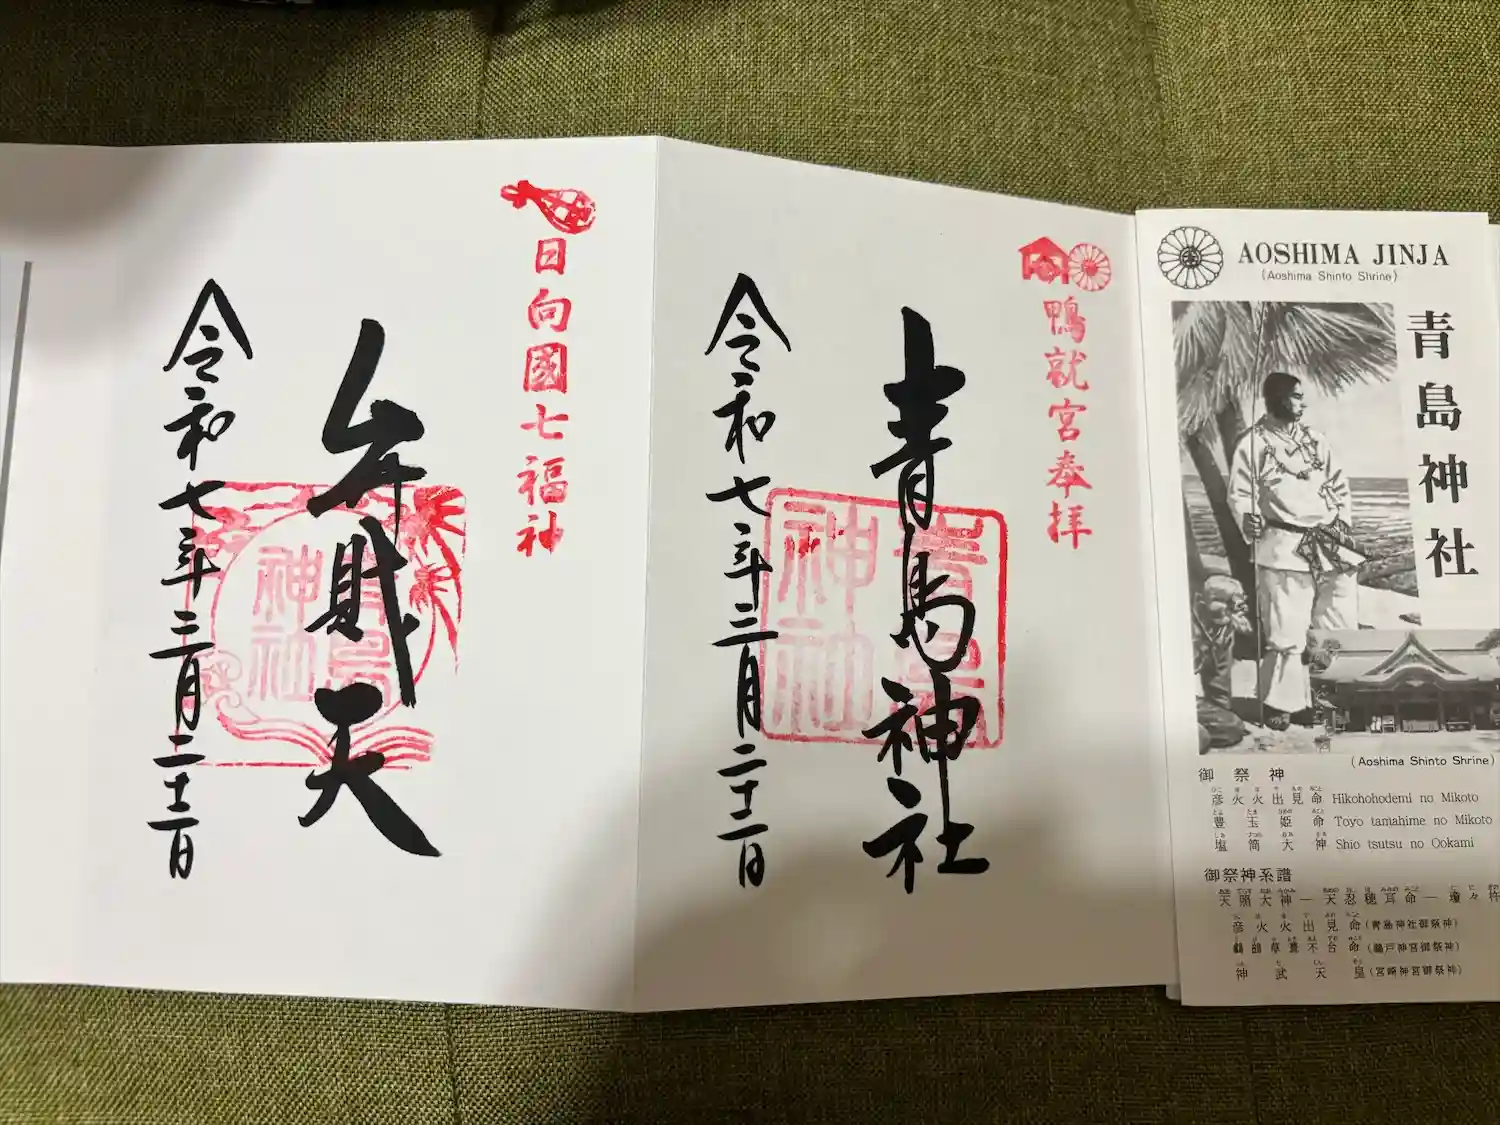 AOSHIMA JINJA
(Aoshima Shinto Shrine)
青島神社
(Aoshima Shinto Shrine)
御祭神
彦火火出見命 Hikohohodemi no Mikoto
豊玉姫命 Toyo tamahime no Mikoto
塩筒大神 Shio tsutsu no Ookami
御祭神系譜
天照大神―天忍穂耳命―瓊々杵
彦火火出見命(青島神社御祭神)
草葺不合命(鵜戸神宮御祭神)
神武天皇(宮崎神宮御祭神)
鴨就宮奉拝
青島神社
青島神社
令和七年三月二十二日
日向國七福神
弁財天
青島神社
令和七年三月二十二日